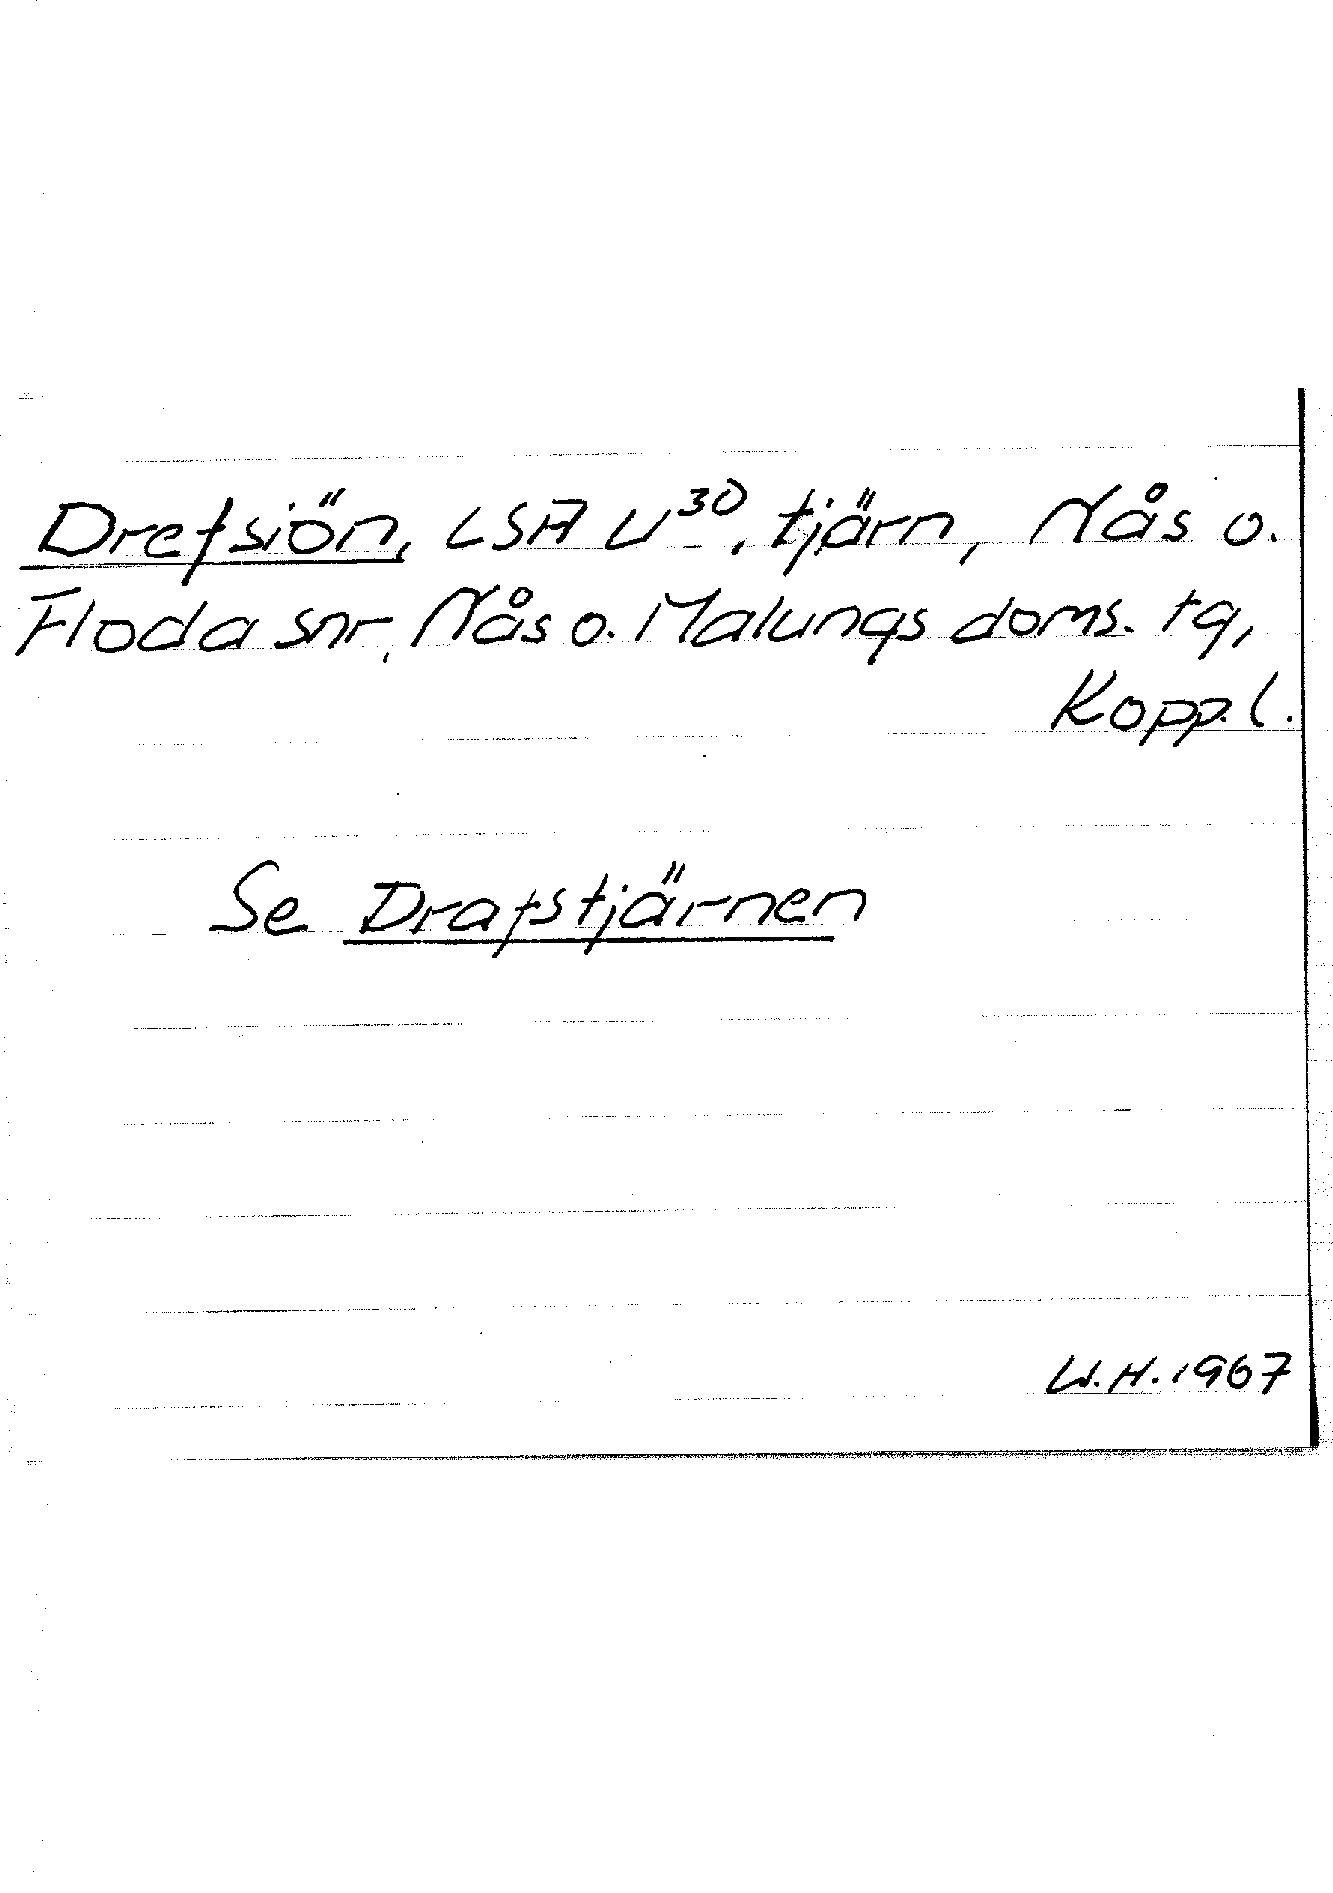 Drefsiön, LSA U³⁰, tjärn, Nås o.
Floda snr, Nås o. Malungs doms. tg,
Kopp. l.
Se Drafstjärnen
W.H. 1967